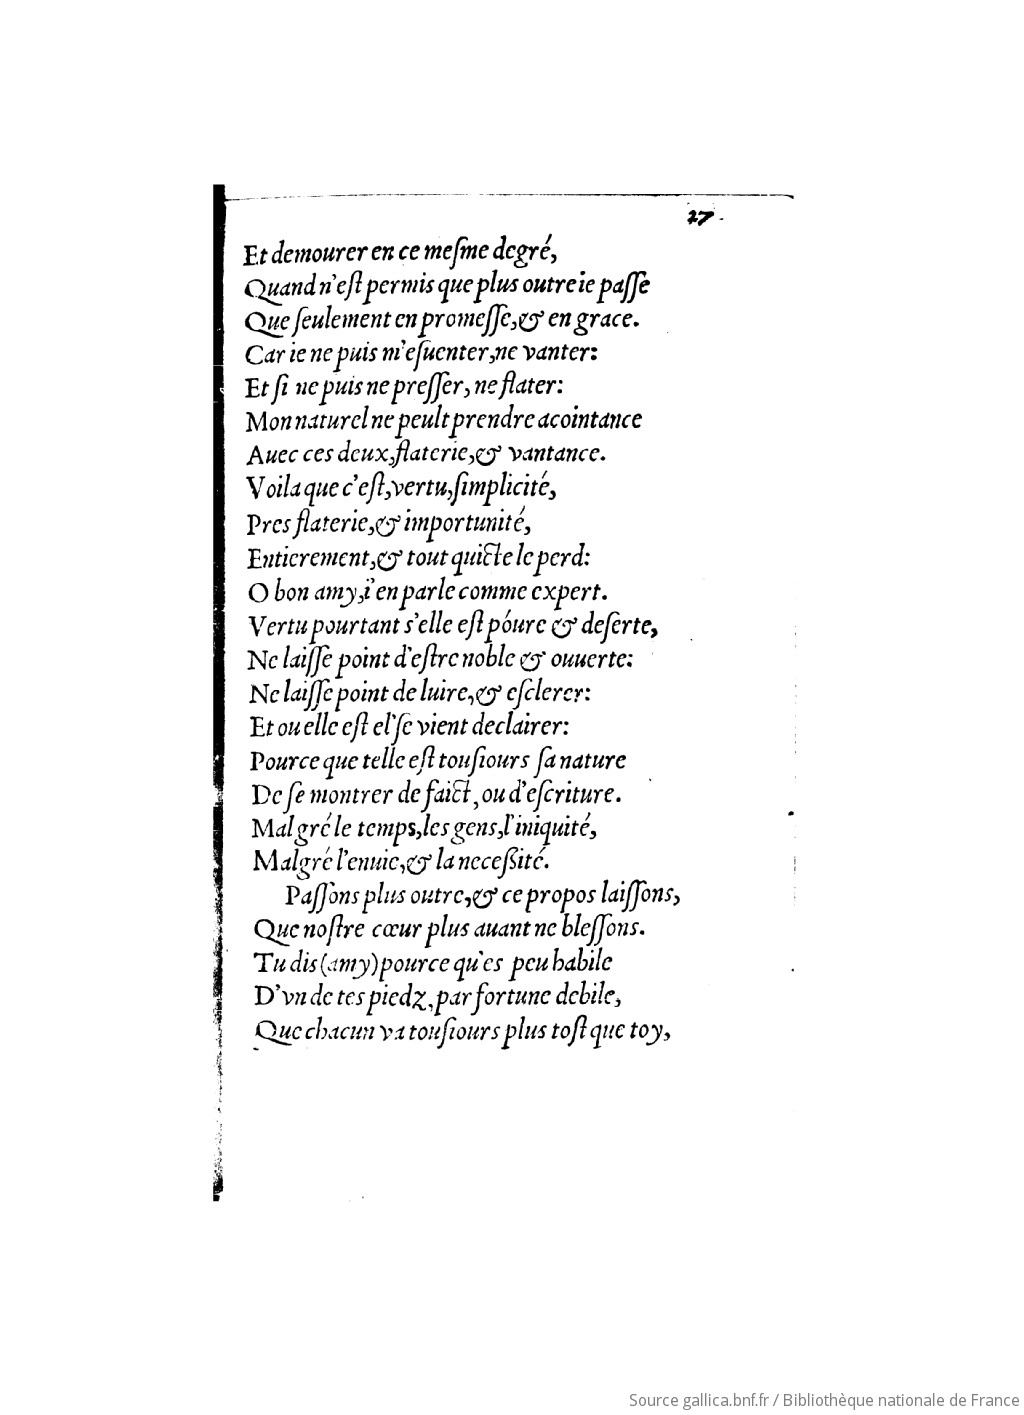 27
Et demourer en ce meſme degré,
Quand n'eſt permis que plus outre ie paſſe
Que ſeulement en promeſſe,& en grace.
Car ie ne puis m'eſuenter,ne vanter:
Et ſi ne puis ne preſſer, ne flater:
Mon naturel ne peult prendre acointance
Auec ces deux,flaterie,& vantance.
Voila que c'eſt,vertu,ſimplicité,
Pres flaterie,& importunité,
Entierement,& tout quicte le perd:
O bon amy,i'en parle comme expert.
Vertu pourtant s'elle eſt póure & deſerte,
Ne laiſſe point d'eſtre noble & ouuerte:
Ne laiſſe point de luire,& eſclerer:
Et ou elle eſt el'ſe vient declairer:
Pource que telle eſt touſiours ſa nature
De ſe montrer de faict,ou d'eſcriture.
Malgré le temps,les gens,l'iniquité,
Malgré l'enuie,& la neceßité.
Paſſons plus outre,& ce propos laiſſons,
Que noſtre cœur plus auant ne bleſſons.
Tu dis (amy) pource qu'es peu habile
D'vn de tes piedz,par fortune debile,
Que chacun va touſiours plus toſt que toy,
Source gallica.bnf.fr / Bibliothèque nationale de France